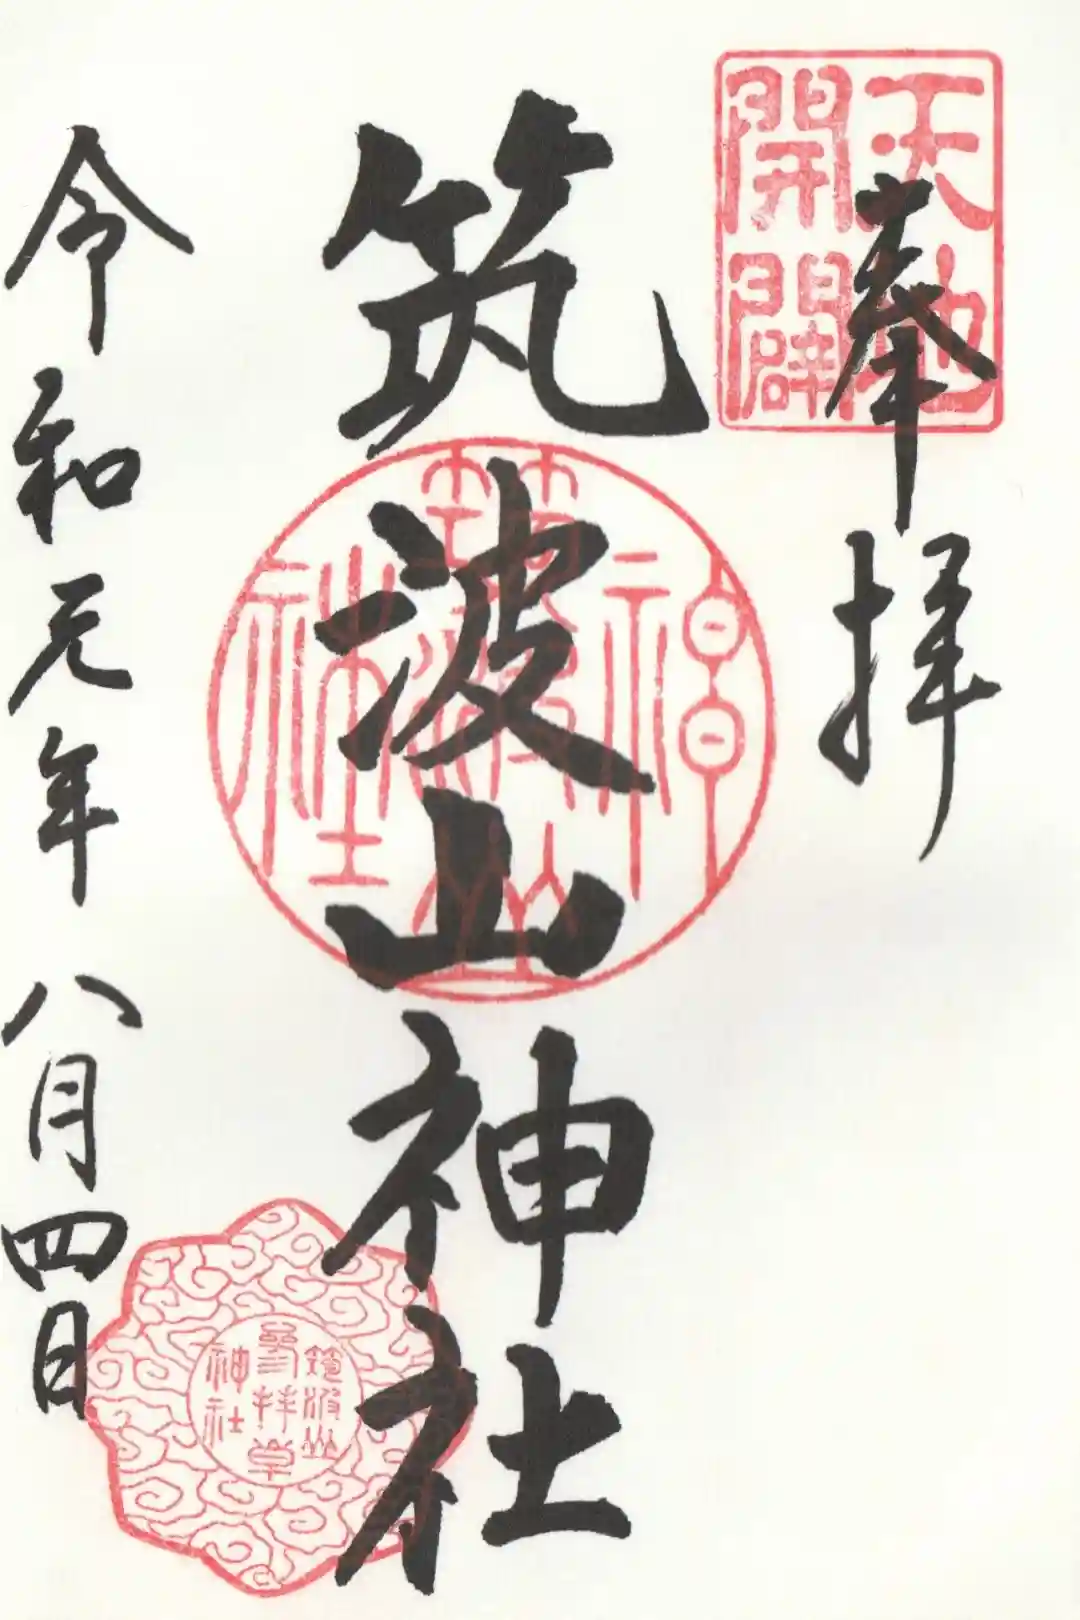 奉拝
天地
開闢
筑波山神社
筑波山
神社
筑波山
参拝章
神社
令和元年八月四日